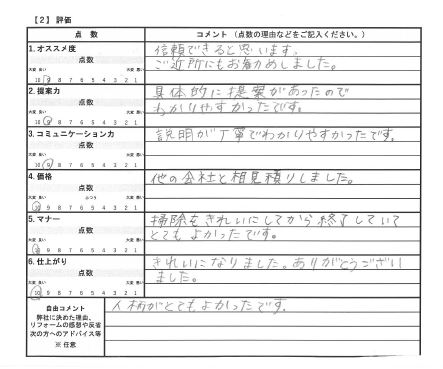 【2】評価
点数
コメント（点数の理由などをご記入ください。）
1.オススメ度
点数
大変 良い 大変 悪い
10 9 8 7 6 5 4 3 2 1
信頼できると思います。
ご近所にもお勧めしました。
2.提案力
点数
大変 良い 大変 悪い
10 9 8 7 6 5 4 3 2 1
具体的に提案があったので
わかりやすかったです。
3.コミュニケーション力
点数
大変 良い 大変 悪い
10 9 8 7 6 5 4 3 2 1
説明が丁寧でわかりやすかったです。
4.価格
点数
大変 良い ふつう 大変 悪い
10 9 8 7 6 5 4 3 2 1
他の会社と相見積りしました。
5.マナー
点数
大変 良い 大変 悪い
10 9 8 7 6 5 4 3 2 1
掃除をきれいにしてから終了していて
とてもよかったです。
6.仕上がり
点数
大変 良い 大変 悪い
10 9 8 7 6 5 4 3 2 1
きれいになりました。ありがとうござい
ました。
自由コメント
弊社に決めた理由、
リフォームの感想や反省
次の方へのアドバイス等
※ 任意
人柄がとてもよかったです。